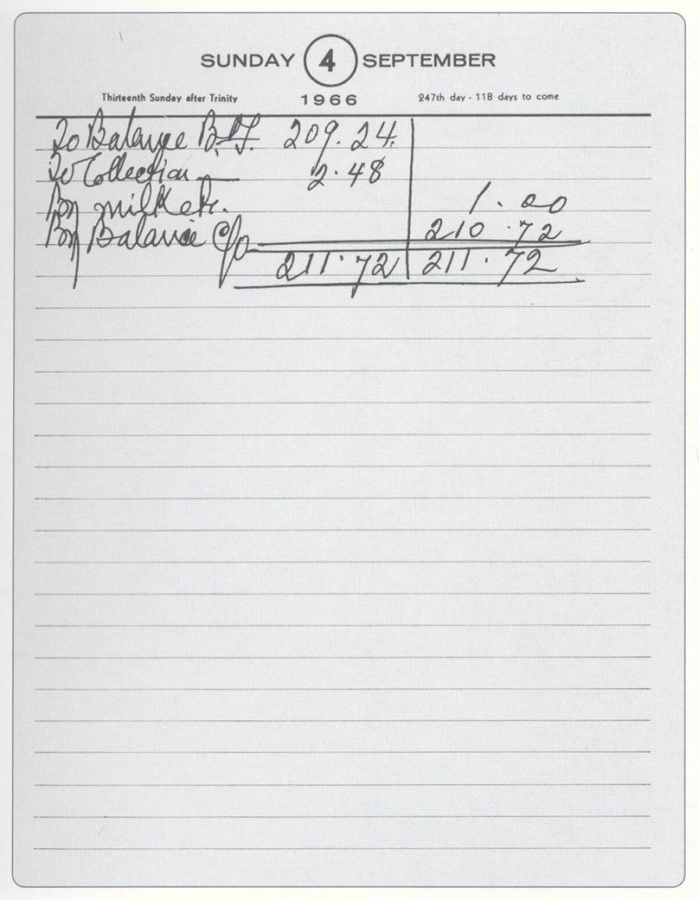 SUNDAY 4 SEPTEMBER
Thirteenth Sunday after Trinity 1966 247th day - 118 days to come
To Balance B.f. 209.24
To Collection 2.48
By milk etc. 1.00
By Balance c/o 210.72
211.72 211.72